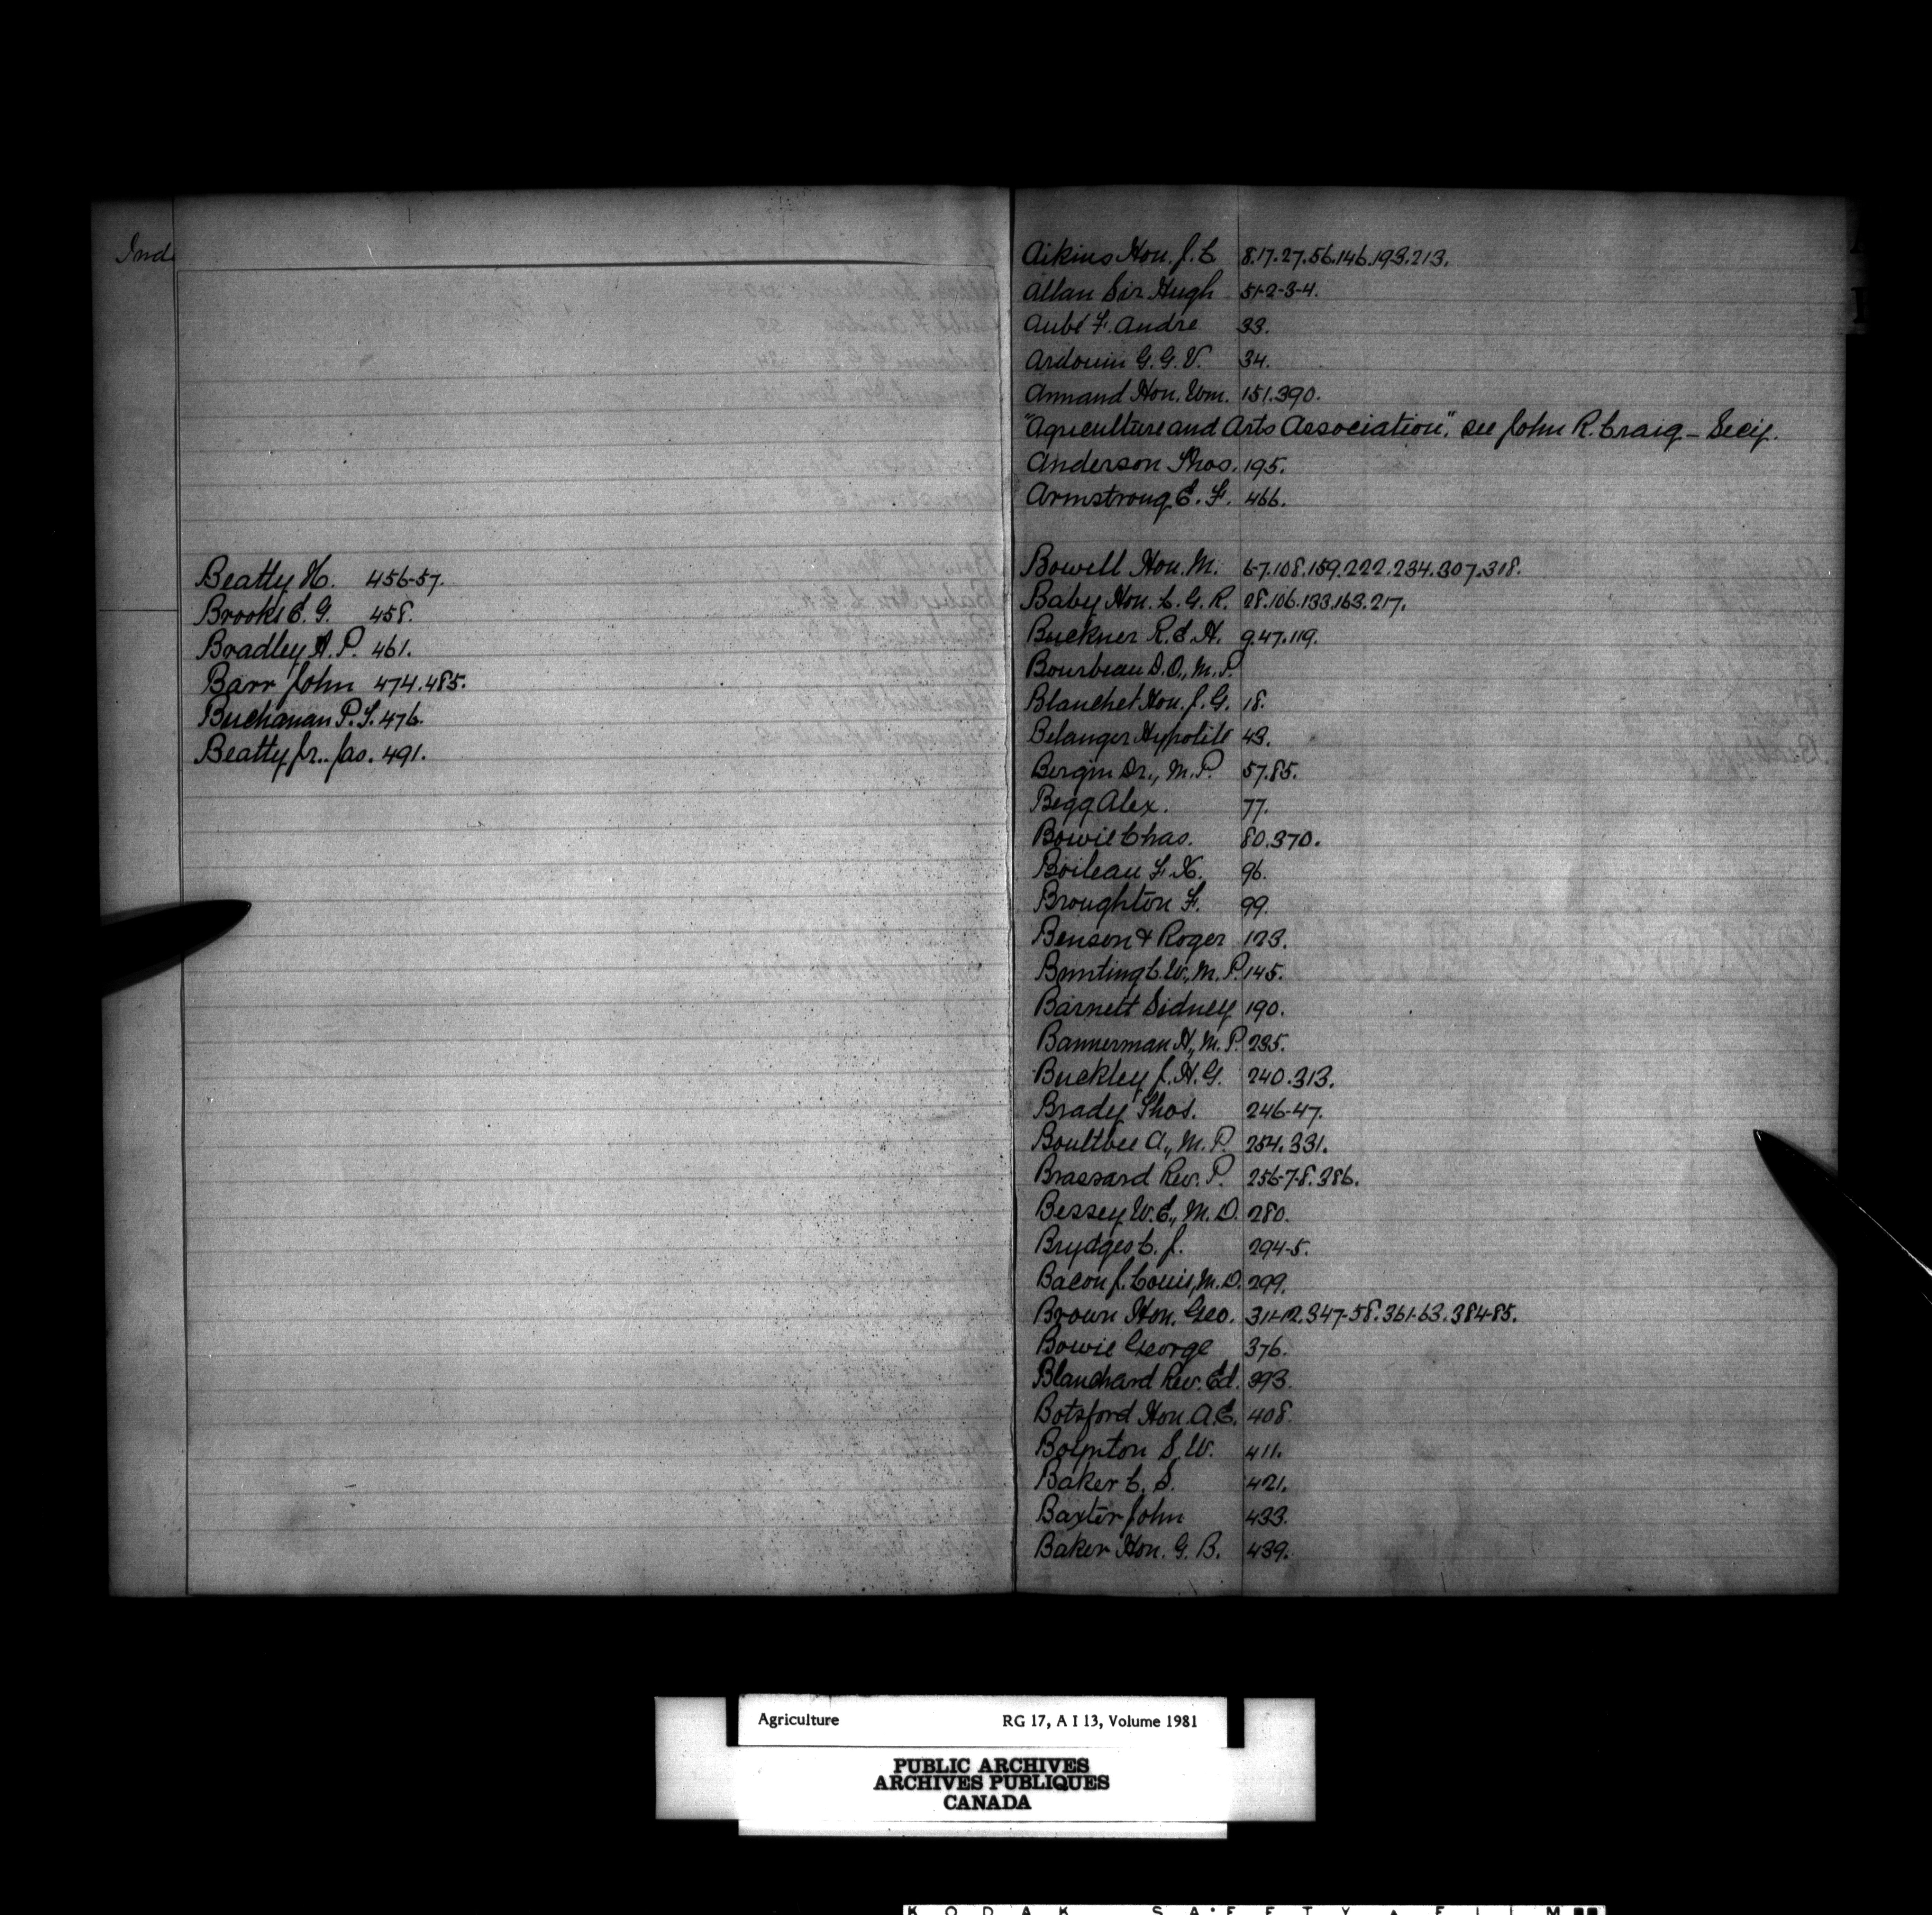 Ind
Beatty H. 456-57.
Brooks E. G. 458.
Bradley A. P. 461.
Barr John 474.485.
Buchanan P. S. 476.
Beatty Jr.. Jas. 491.
Aikins Hon. J. C 8.17.27.56.146.193.213.
Allan Sir Hugh 51-2-3-4.
Aubé F. Andre 33.
Ardouin G. G. V. 34.
Annand Hon. Wm. 151.390.
"Agriculture and Arts Association", see John R. Craig - Secy.
Anderson Thos. 195.
Armstrong E. F. 466.
Bowell Hon. M. 6-7.108.159.222.234.307.318.
Baby Hon. L. G. R. 28.106.133.163.217.
Buckner R. E. H. 9.47.119.
Bourbeau D. O., M. P.
Blanchet Hon. J. G. 18.
Belanger Hypolite 43.
Bergin Dr., M. P. 57.85.
Begg Alex. 77.
Bowie Chas. 80.370.
Boileau F. X. 96.
Broughton F. 99.
Benson & Roger 123.
Bunting C. W., M. P. 145.
Barnett Sidney 190.
Bannerman H., M. P. 235.
Buckley J. H. G. 240.313.
Brady Thos. 246-47.
Boultbee A., M. P. 254.331.
Brassard Rev. P. 256-7-8.386.
Bessey W. E., M. D. 280.
Brydges C. J. 294-5.
Bacon J. Louis, M. D. 299.
Brown Hon. Geo. 311-12.347-58.361-63.384-85.
Bowie George 376.
Blanchard Rev. Ed. 393.
Botsford Hon. A. E. 408.
Boynton S. W. 411.
Baker C. S. 421.
Baxter John 433.
Baker Hon. G. B. 439.
Agriculture RG 17, A I 13, Volume 1981
PUBLIC ARCHIVES
ARCHIVES PUBLIQUES
CANADA
KODAK SAFETY FILM